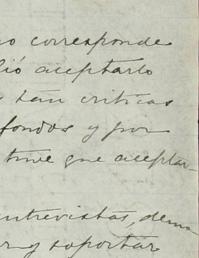 no corresponde
lió aceptarlo
tan criticas
fondos y por
tuve que aceptar
entrevistas, dema
r y soportar